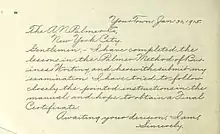 Your Town, Jan. 30, 1915.
The A. N. Palmer Co.,
New York City.
Gentlemen:- I have completed the
lessons in the Palmer Method of Bus-
iness Writing and herewith submit my
examination. I have tried to follow
closely the printed instructions in the
manual, and hope to obtain a Final
Certificate.
Awaiting your decision, I am,
Sincerely,